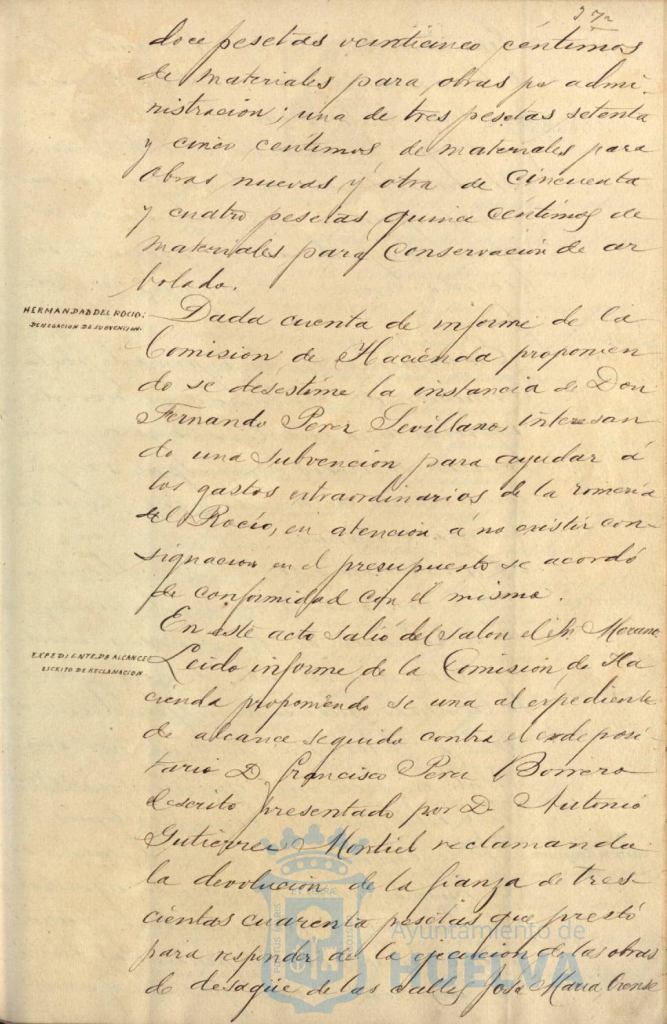 doce pesetas veinticinco céntimos
de materiales para obras por admi-
nistración; una de tres pesetas setenta
y cinco céntimos de materiales para
obras nuevas y otra de cincuenta
y cuatro pesetas quince céntimos de
materiales para conservación de ar
bolado.
HERMANDAD DEL ROCIO:
DENEGACION DE SUBVENCION.
Dada cuenta de informe de la
Comision de Hacienda proponien
do se desestime la instancia de Don
Fernando Perez Sevillano, interesan
do una subvención para ayudar á
los gastos extraordinarios de la romeria
del Rocío, en atención á no existir con-
signacion en el presupuesto se acordó
de conformidad con el mismo.
En este acto salió del salon el Sr. Morano
EXPEDIENTE DE ALCANCE
ESCRITO DE RECLAMACION
Leido informe de la Comisión de Ha
cienda proponiendo se una al expediente
de alcance seguido contra el exdeposi-
tario D. Francisco Perez Borrero
el escrito presentado por D. Antonio
Gutierrez Montiel reclamando
la devolucion de la fianza de tres-
cientas cuarenta pesetas que prestó
para responder de la ejecucion de las obras
de desagüe de las calles Jose Maria Orense
Ayuntamiento de
HUELVA